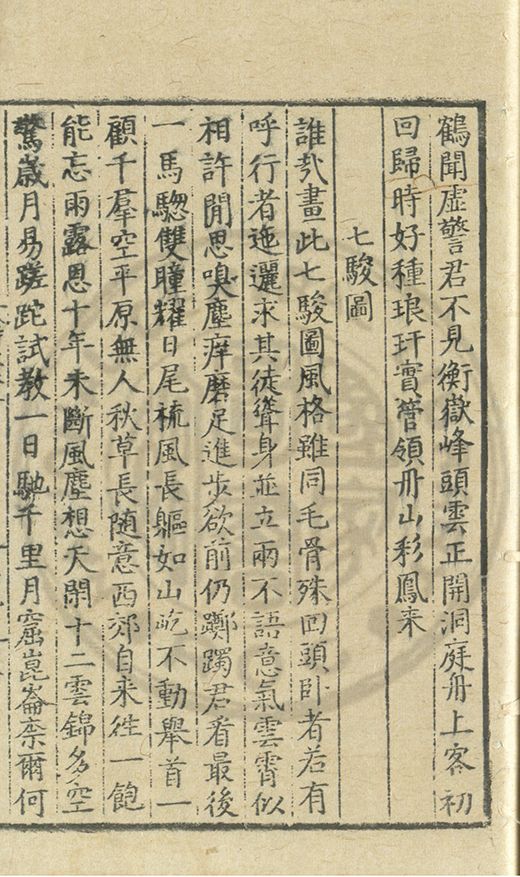 鶴聞虛警君不見衡嶽峰頭雲正開洞庭舟上客初
回歸時好種琅玕實管領丹山彩鳳来
七駿圖
誰㢤畫此七駿圖風格雖同毛骨殊囬頭卧者若有
呼行者迤邐求其徒聳身並立兩不語意氣雲霄似
相許閒思嗅塵痒磨足進步欲前仍躑躅君看最後
一馬驄雙瞳耀日尾梳風長軀如山屹不動舉首一
顧千羣空平原無人秋草長随意西郊自来徃一飽
能忘雨露恩十年未斷風塵想天閑十二雲錦多空
驚嵗月易蹉跎試教一日馳千里月窟崑崙柰爾何